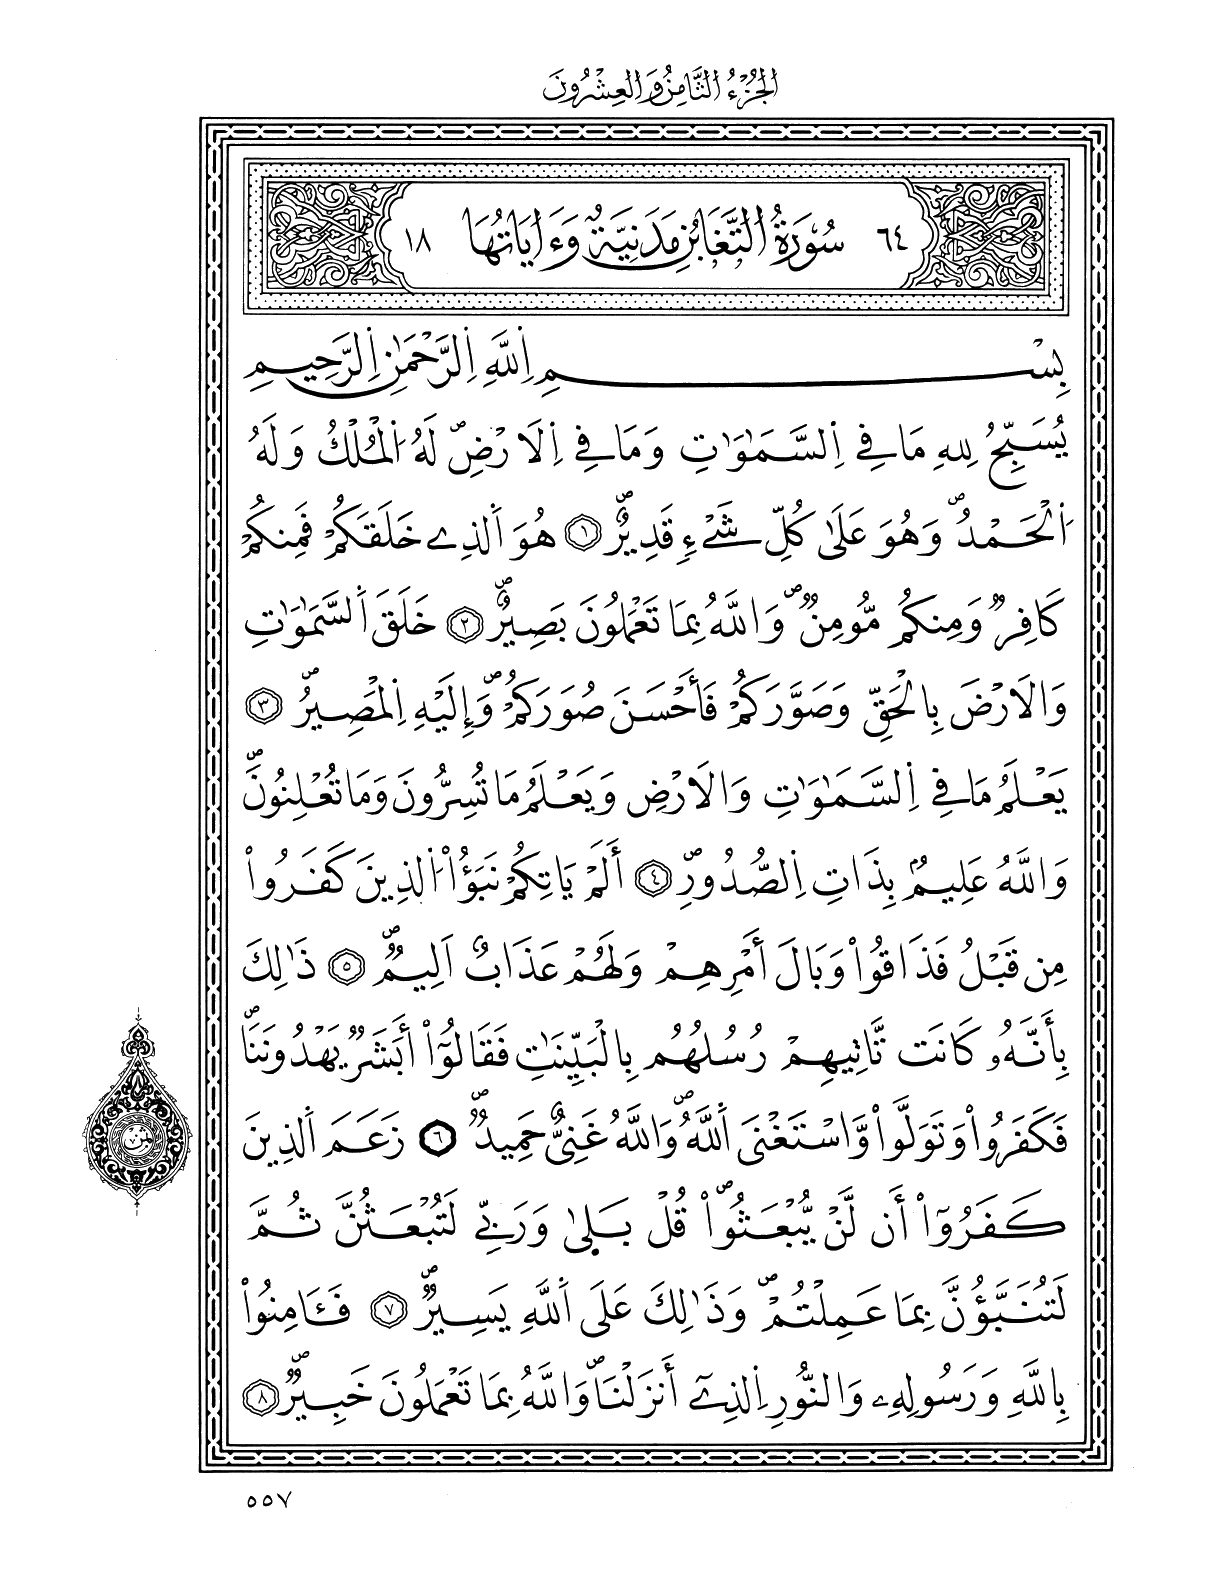 الجُزْءُ الثَّامِنُ وَالعِشْرُونَ
٦٤ سُورَةُ التَّغَابُنِ مَدَنِيَّةٌ وَءَايَاتُهَا ١٨
بِسْمِ اِللَّهِ اِلرَّحْمَٰنِ اِلرَّحِيمِ
يُسَبِّحُ لِلهِ مَا فِے اِلسَّمَٰوَٰتِ وَمَا فِے اِلَارْضِۖ لَهُ اُلْمُلْكُ وَلَهُ
اُلْحَمْدُۖ وَهُوَ عَلَىٰ كُلِّ شَےْءٖ قَدِيرٌۖ ١ هُوَ اَلذِے خَلَقَكُمْ فَمِنكُمْ
كَافِرٞ وَمِنكُم مُّومِنٞۖ وَاللَّهُ بِمَا تَعْمَلُونَ بَصِيرٌۖ ٢ خَلَقَ اَلسَّمَٰوَٰتِ
وَالَارْضَ بِالْحَقِّ وَصَوَّرَكُمْ فَأَحْسَنَ صُوَرَكُمْۖ وَإِلَيْهِ اِلْمَصِيرُۖ ٣
يَعْلَمُ مَا فِے اِلسَّمَٰوَٰتِ وَالَارْضِ وَيَعْلَمُ مَا تُسِرُّونَ وَمَا تُعْلِنُونَۖ
وَاللَّهُ عَلِيمُۢ بِذَاتِ اِلصُّدُورِۖ ٤ أَلَمْ يَاتِكُمْ نَبَؤُاْ اُلذِينَ كَفَرُواْ
مِن قَبْلُ فَذَاقُواْ وَبَالَ أَمْرِهِمْ وَلَهُمْ عَذَابٌ اَلِيمٞۖ ٥ ذَٰلِكَ
بِأَنَّهُۥ كَانَت تَّاتِيهِمْ رُسُلُهُم بِالْبَيِّنَٰتِ فَقَالُوٓاْ أَبَشَرٞ يَهْدُونَنَاۖ
فَكَفَرُواْ وَتَوَلَّواْ وَّاسْتَغْنَى اَللَّهُۖ وَاللَّهُ غَنِيٌّ حَمِيدٞۖ ٦ زَعَمَ اَلذِينَ
كَفَرُوٓاْ أَن لَّنْ يُّبْعَثُواْۖ قُلْ بَلَىٰ وَرَبِّے لَتُبْعَثُنَّ ثُمَّ
لَتُنَبَّؤُنَّ بِمَا عَمِلْتُمْۖ وَذَٰلِكَ عَلَى اَللَّهِ يَسِيرٞۖ ٧ فَـَٔامِنُواْ
بِاللَّهِ وَرَسُولِهِۦ وَالنُّورِ اِلذِےٓ أَنزَلْنَاۖ وَاللَّهُ بِمَا تَعْمَلُونَ خَبِيرٞۖ ٨
ثمن
٥٥٧